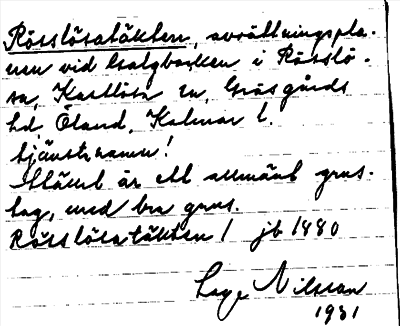 Rösslösatäkten, avrättningspla-
nen vid Galgbacken i Rösslö-
sa, Kastlösa sn, Gräsgårds
hd, Öland, Kalmar l.
tjänstenamn!
är ett allmänt grus-
tag, med bra grus.
Rösslösatäkten / jb 1880
Lage Nilsson
1931